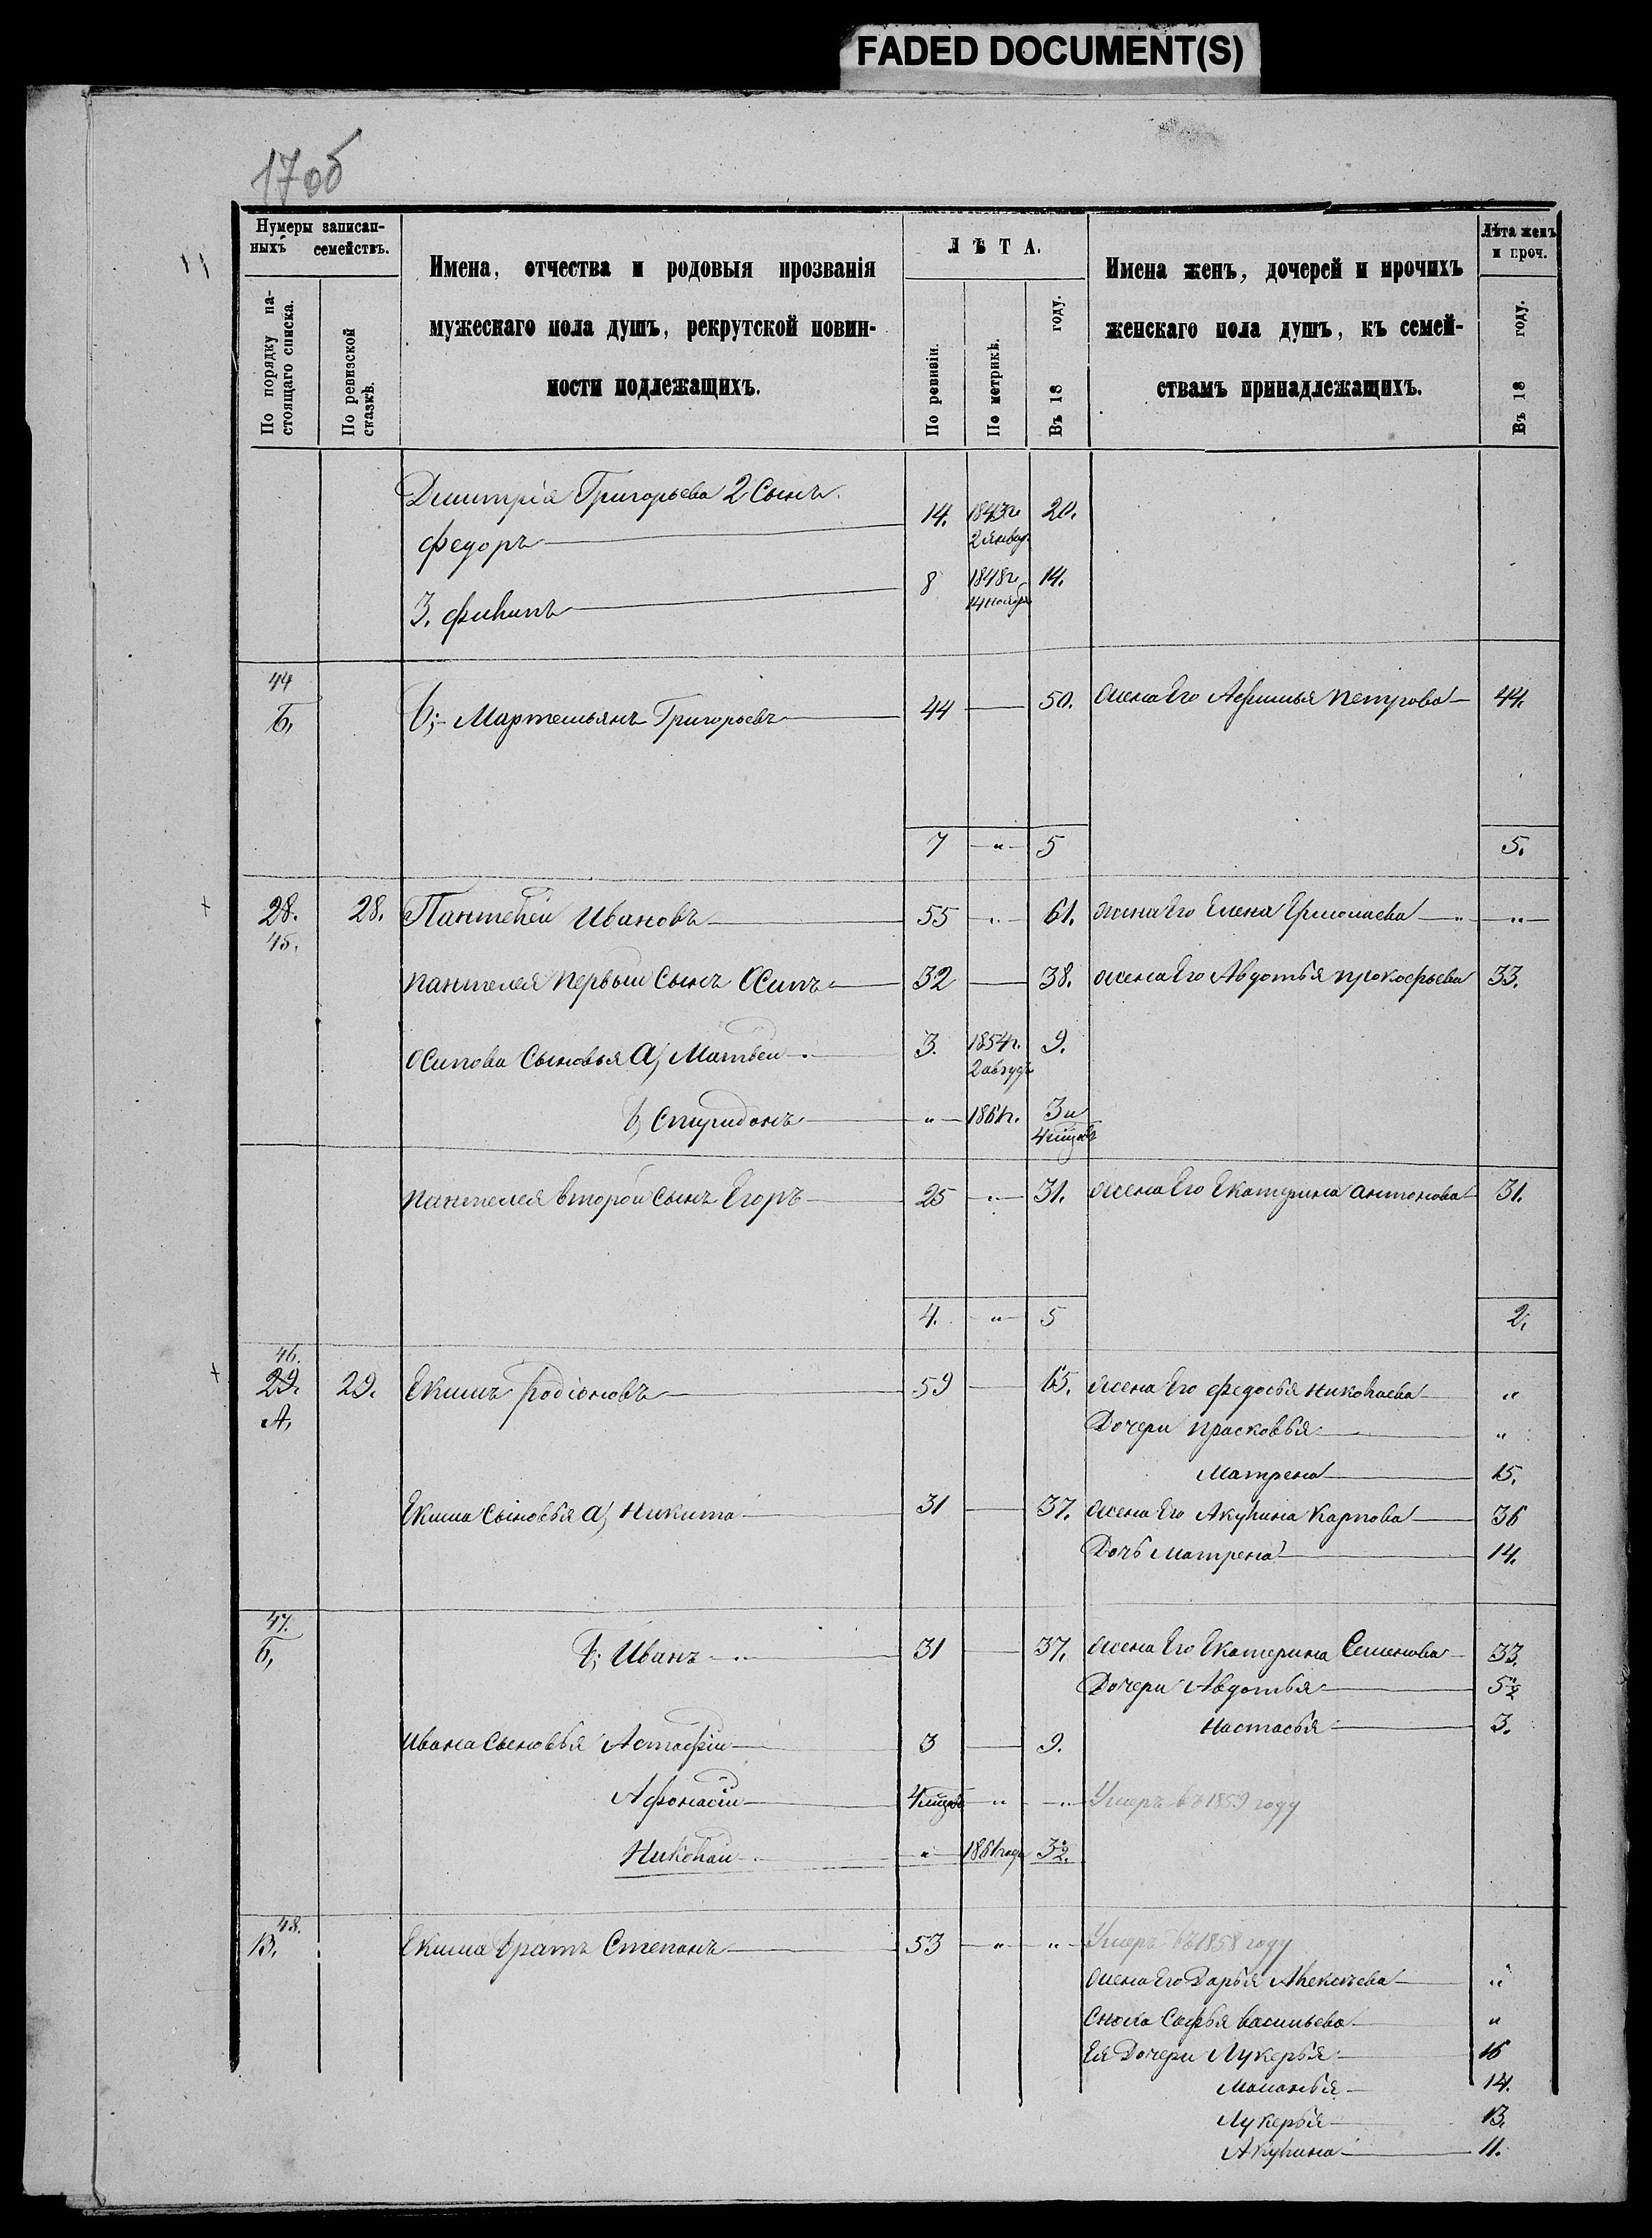 FADED DOCUMENT(S)
17об
Нумеры записан-
ныхъ семействъ.
По порядку на-
стоящаго списка.
По ревизской
сказкѣ.
Имена, отчества и родовыя прозванія
мужескаго пола душъ, рекрутской повин-
ности подлежащихъ.
ЛѢТА.
По ревизіи.
По метрикѣ.
Въ 18 году.
Имена женъ, дочерей и прочихъ
женскаго пола душъ, къ семей-
ствамъ принадлежащихъ.
Лѣта женъ
и проч.
Въ 18 году.
Дмитрія Григорьева 2 Сынъ
Федоръ 14. 1843г. 20.
2 Январ
3. Филипъ 8 1848г. 14.
14 ноябр
44
Б, Б; Мартемьянъ Григорьевъ 44 50. жена Его Афимья Петрова 44.
7 " 5 5.
28. 28. Пантелей Ивановъ 55 " 61. жена Его Елена Ермолаева " "
45.
Пантелея первый Сынъ Осипъ 32 38. жена Его Авдотья Прокофьева 33.
Осипова Сыновья а, Матвей 3. 1854г. 9.
2 август
б, Спиридонъ " 1861г. 3и
4 мѣсяц
Пантелея второй Сынъ Егоръ 25 " 31. жена Его Екатерина Антонова 31.
4. " 5 2.
46.
29. 29. Екимъ Родіоновъ 59 65. жена Его Федосья Николаева "
А, Дочери Прасковья "
Матрена 15.
Екима Сыновья а, Никита 31 37. жена Его Акулина Карпова 36
Дочь Матрена 14.
47.
Б, б; Иванъ 31 37. жена Его Екатерина Семенова 33.
Дочери Авдотья 5½
Настасья 3.
Ивана Сыновья Астафій 3 9.
Афонасій 4 мѣсяц " " Умеръ въ 1859 году
Николай " 1861 году
48.
В. Екима Братъ Степанъ 53 " " Умеръ въ 1858 году
жена Его Дарья Алексѣева "
Сноха Софья Васильева "
Ея Дочери Лукерья 16
Маланья 14.
Лукерья 13.
Акулина 11.